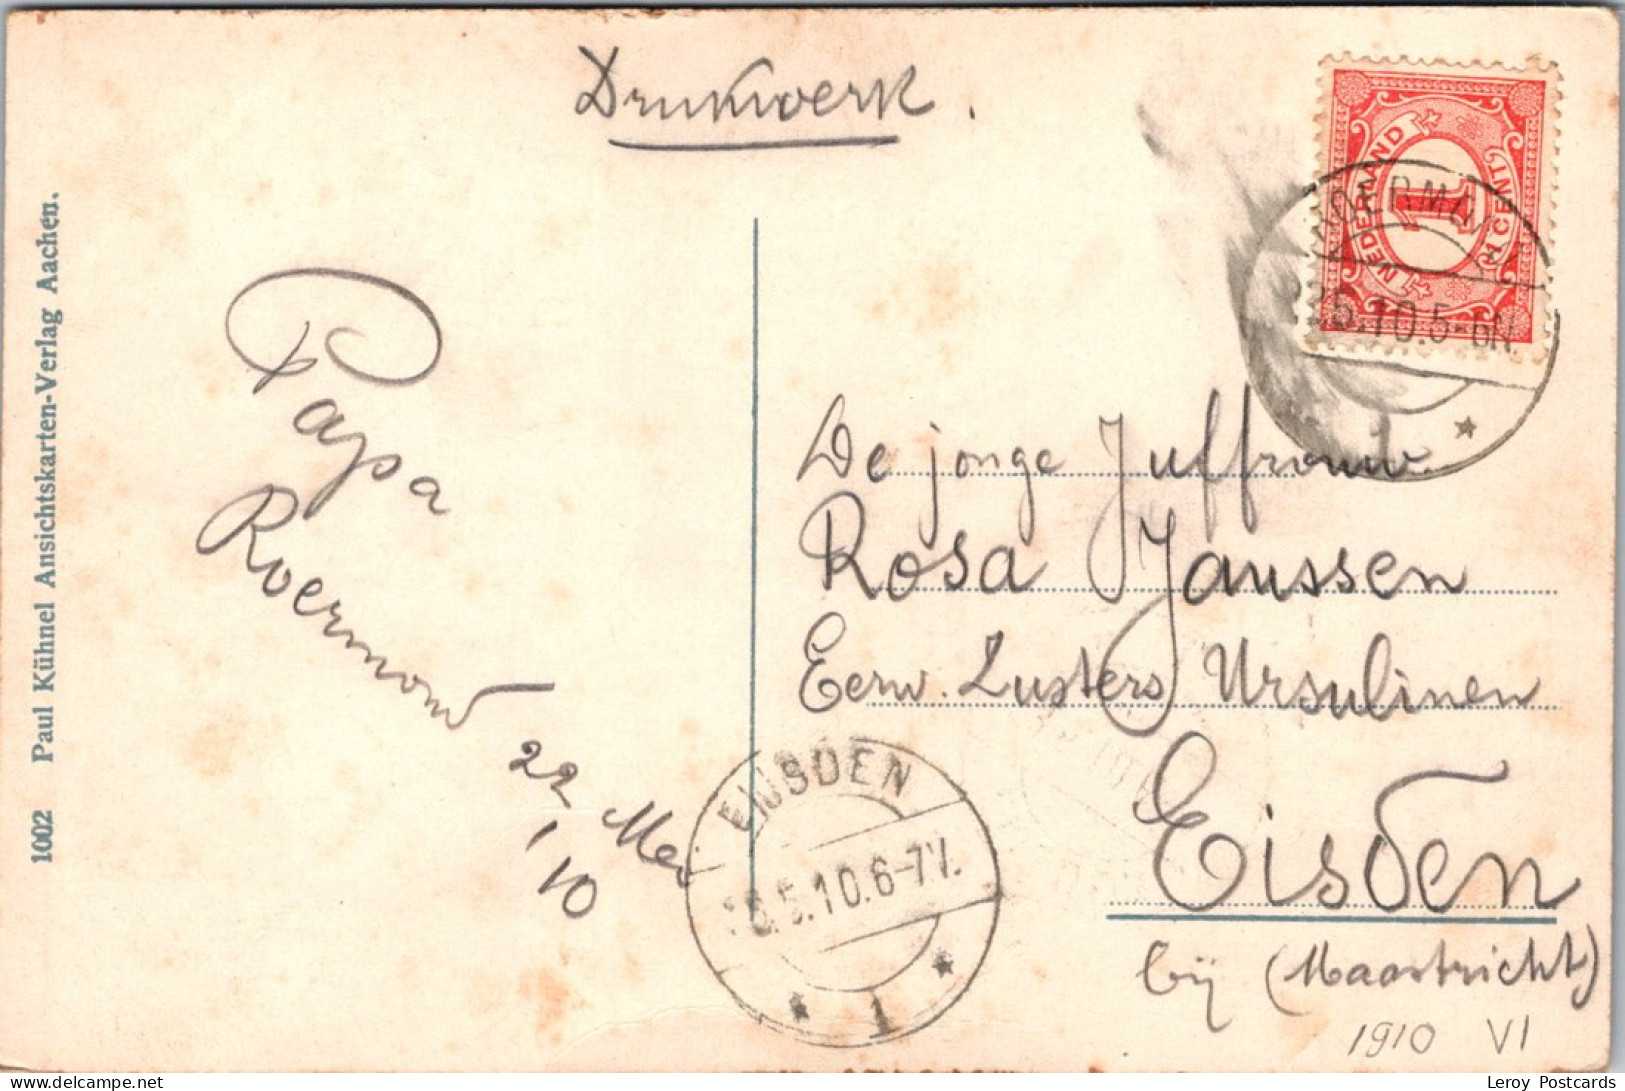 Drukwerk.
NEDERLAND
1
1 CENT
ROERMOND
5.10.5-6N.
1002 Paul Kühnel Ansichtskarten-Verlag Aachen.
Papa
Roermond
22 Mei
/10
De jonge Juffrouw
Rosa Janssen
Eerw. Zusters Ursulinen
Eisden
bij (Maastricht)
EIJSDEN
5.10.6-7V.
1
1910 VI
Leroy Postcards